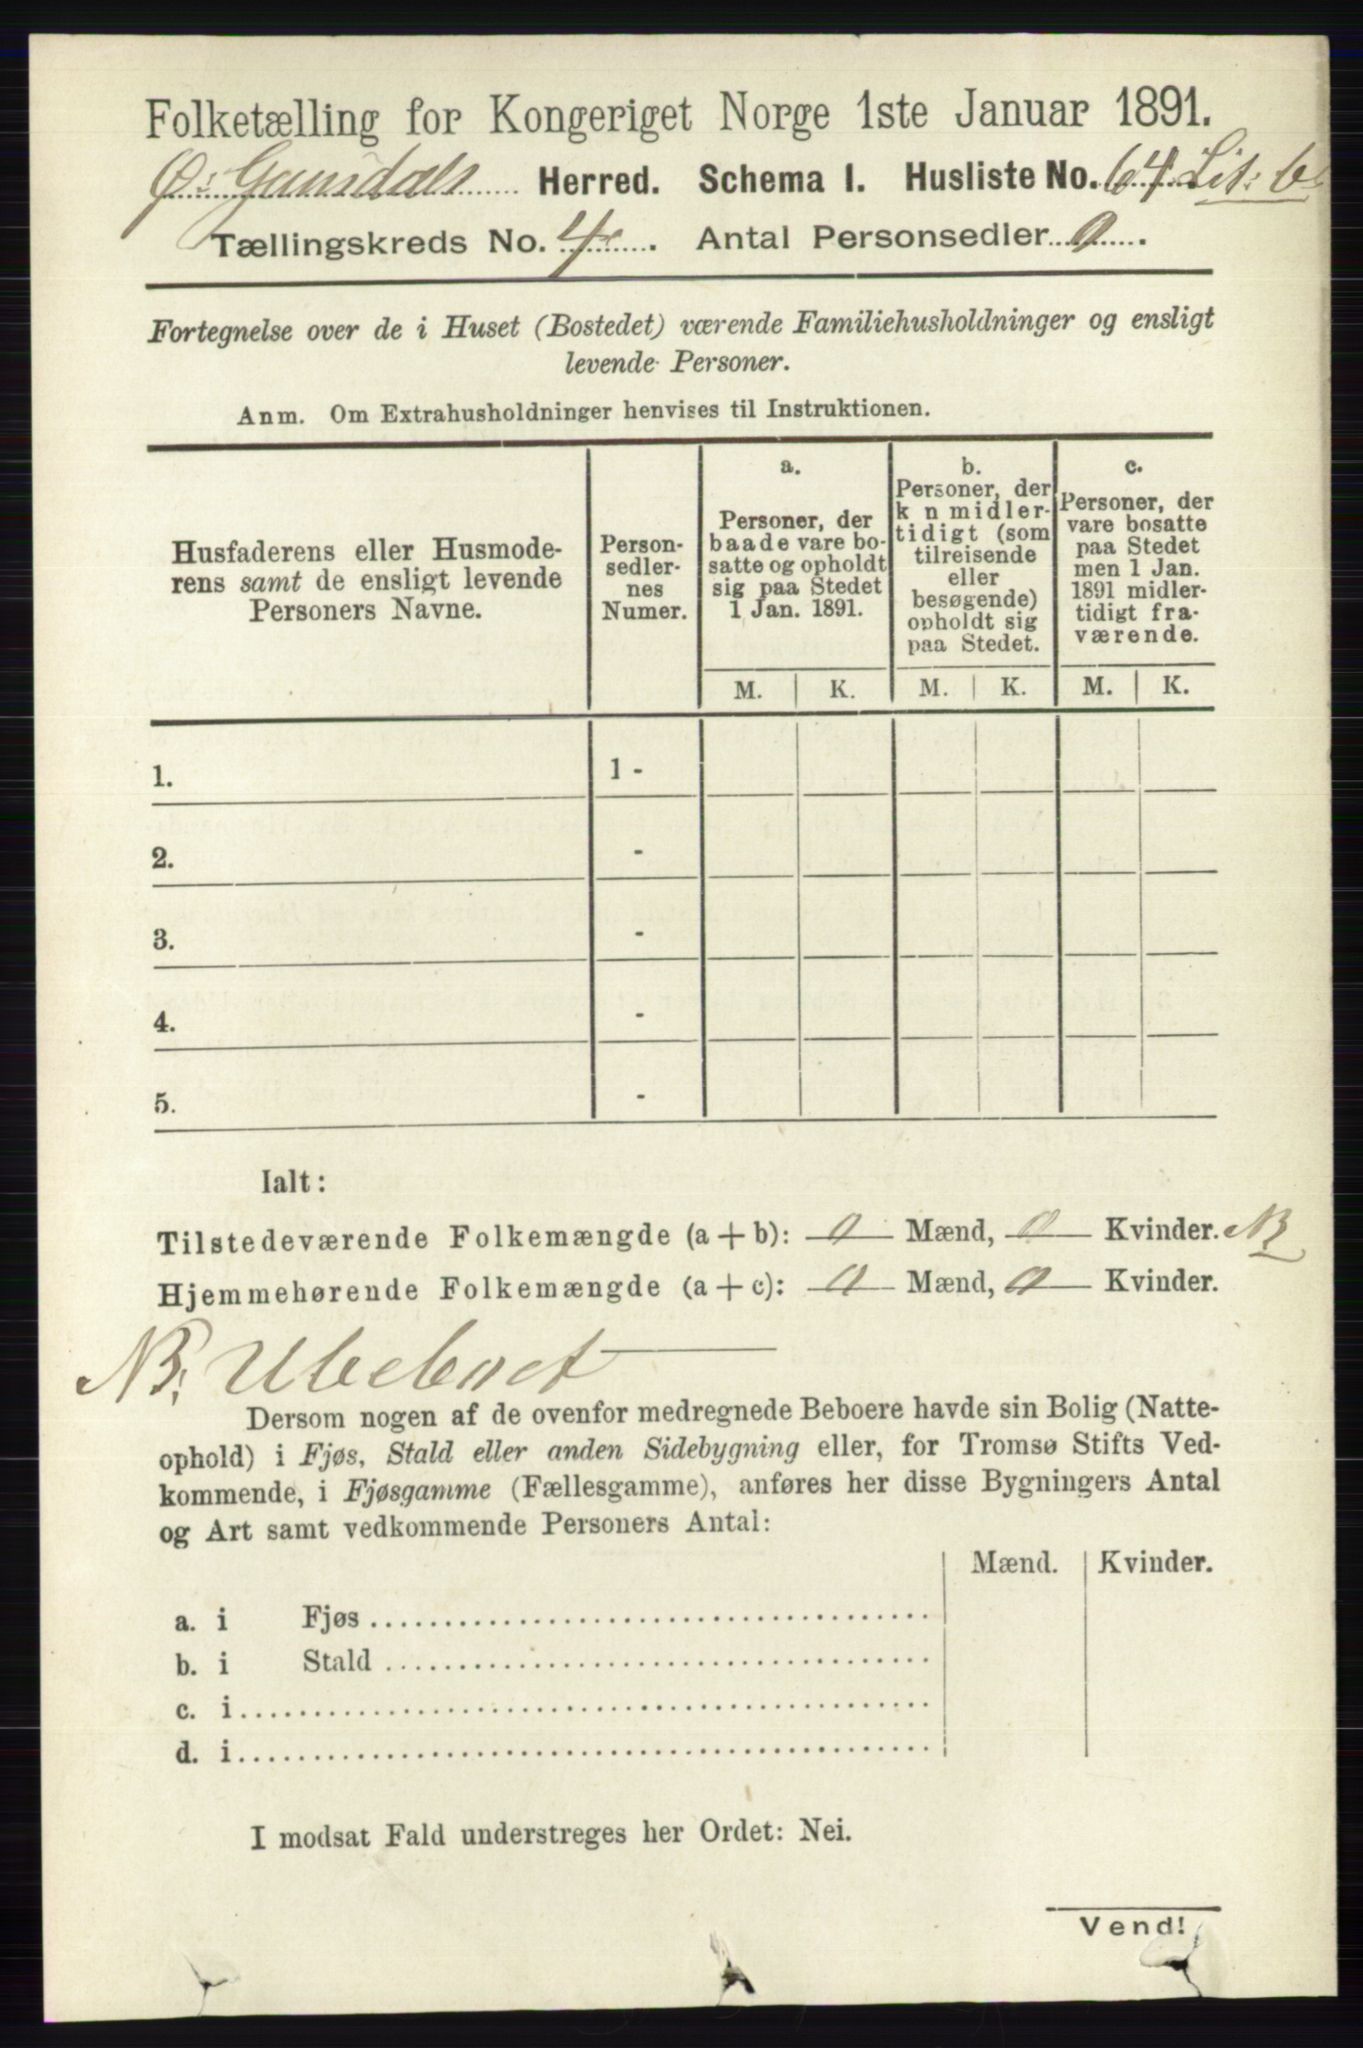 Folketælling for Kongeriget Norge 1ste Januar 1891.
Ø: Gausdals Herred. Schema I. Husliste No. 64 Lit: b
Tællingskreds No. 4. Antal Personsedler 0.
Fortegnelse over de i Huset (Bostedet) værende Familiehusholdninger og ensligt
levende Personer.
Anm. Om Extrahusholdninger henvises til Instruktionen.
Husfaderens eller Husmode-
rens samt de ensligt levende
Personers Navne.
Person-
sedler-
nes
Numer.
a.
Personer, der
baade vare bo-
satte og opholdt
sig paa Stedet
1 Jan. 1891.
b.
Personer, der
k n midler-
tidigt (som
tilreisende
eller
besøgende)
opholdt sig
paa Stedet.
c.
Personer, der
vare bosatte
paa Stedet
men 1 Jan.
1891 midler-
tidigt fra-
værende.
M. K. M. K. M. K.
1. 1 -
2. -
3. -
4. -
5. -
Ialt:
Tilstedeværende Folkemængde (a + b): 0 Mænd, 0 Kvinder. NB
Hjemmehørende Folkemængde (a + c): 0 Mænd, 0 Kvinder.
NB: Ubeboet
Dersom nogen af de ovenfor medregnede Beboere havde sin Bolig (Natte-
ophold) i Fjøs, Stald eller anden Sidebygning eller, for Tromsø Stifts Ved-
kommende, i Fjøsgamme (Fællesgamme), anføres her disse Bygningers Antal
og Art samt vedkommende Personers Antal:
Mænd. Kvinder.
a. i Fjøs
b. i Stald
c. i
d. i
I modsat Fald understreges her Ordet: Nei.
Vend!